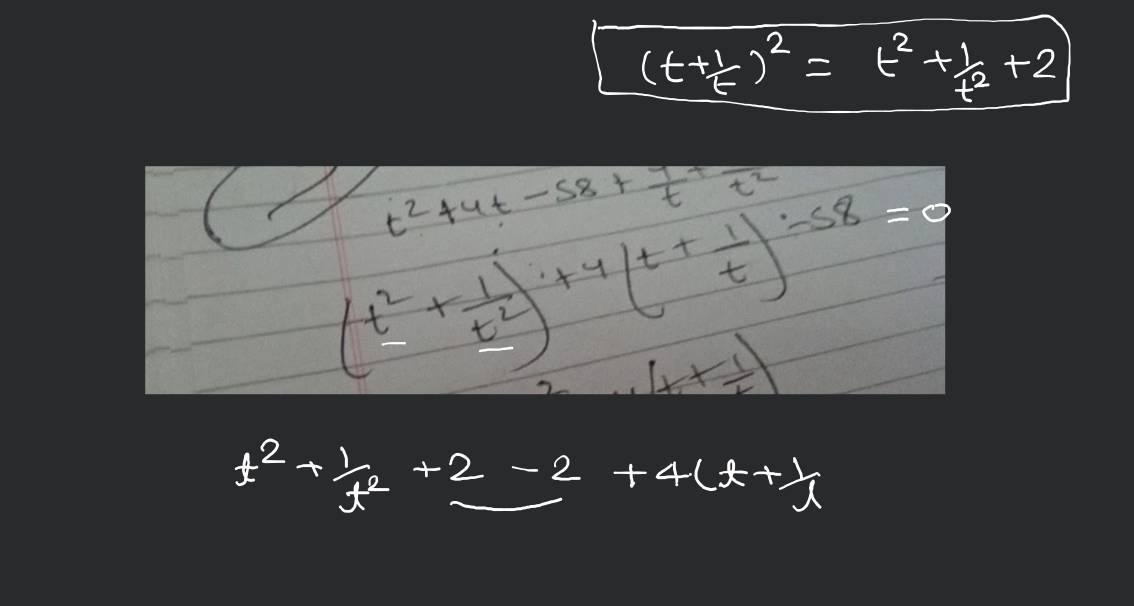 (t+1/t)² = t² + 1/t² + 2
t² + 4t - 58 + 4/t +
(t² + 1/t²) + 4(t + 1/t) - 58 = 0
(t + 1/t)
t² + 1/t² + 2 - 2 + 4(t + 1/t